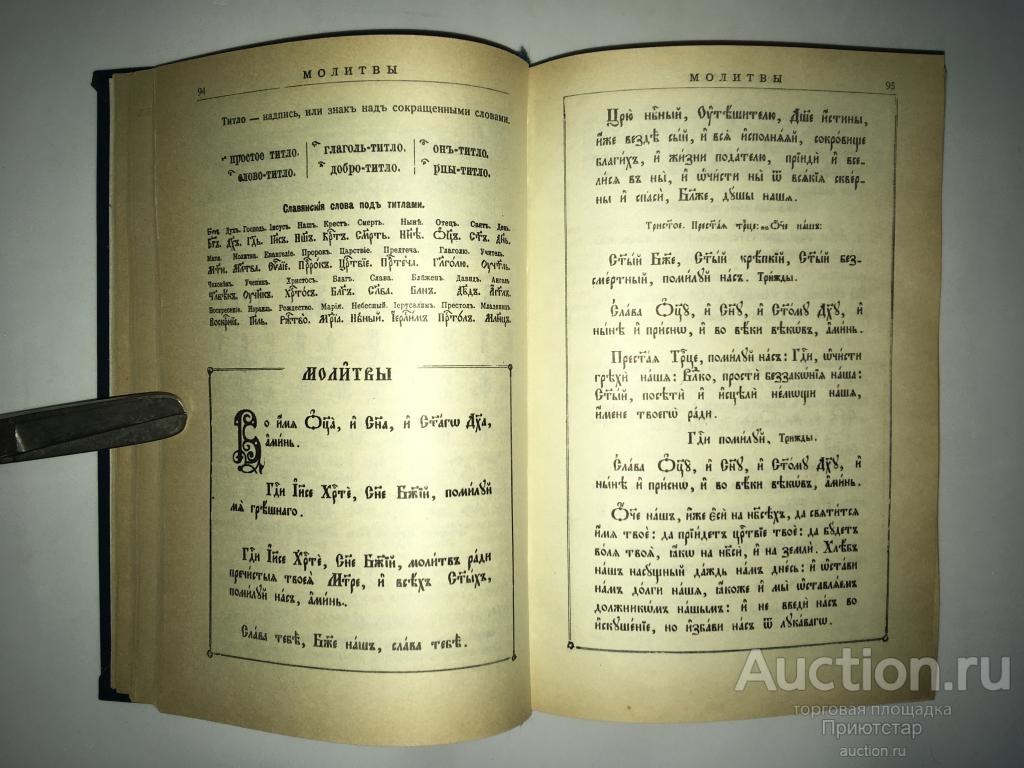 94
МОЛИТВЫ
Титло — надпись, или знакъ надъ сокращенными словами.
простое титло.
глаголь-титло.
онъ-титло.
слово-титло.
добро-титло.
рцы-титло.
Славянскія слова подъ титлами.
Богъ. Духъ. Господь. Іисусъ. Нашъ. Крестъ. Смерть. Нынѣ. Отецъ. Святъ. День.
Мати. Молитва. Евангеліе. Пророкъ. Царствіе. Предтеча. Глаголю. Учитель.
Человѣкъ. Ученикъ. Христосъ. Благъ. Слава. Блаженъ. Давидъ. Ангелъ
Воскресеніе. Израиль. Рождество. Марія. Небесный. Іерусалимъ. Престолъ. Младенецъ
МОЛИ̑ТВЫ
Во и҆́мѧ Ѻ҆ц҃а̀, и҆ Сн҃а, и҆ Ст҃а́гѡ Дх҃а,
а҆ми́нь.
Гд҇и І҆и҃се Хрт҇ѐ, Сн҃е Бж҃їй, поми́лꙋй
мѧ̀ грѣ́шнаго.
Гд҇и І҆и҃се Хрт҇ѐ, Сн҃е Бж҃їй, моли́твъ ра́ди
пречи́стыѧ твоеѧ̀ Мт҃ре, и҆ всѣ́хъ Ст҃ы́хъ,
поми́лꙋй на́съ, а҆ми́нь.
Сла́ва тебѣ̀, Бж҃е нашъ, сла́ва тебѣ̀.
МОЛИТВЫ
95
Цр҃ю̀ нб҇ный, Оу҆тѣ́шителю, Дш҃е и҆́стины,
и҆́же вездѣ̀ сы́й, и҆ всѧ̑ и҆сполнѧ́ѧй, сокро́вище
благи́хъ, и҆ жи́зни пода́телю, прїидѝ и҆ все-
ли́сѧ въ ны̀, и҆ ѡ҆чи́сти ны̀ ѿ всѧ́кїѧ сквéр-
ны и҆ спасѝ, Бл҃же, дꙋ́шы на́шѧ.
Трист҃ое. Прест҃а́ѧ трⷪ҇це: по Ѻ҆́ч҃е на́шъ:
Ст҃ы́й Бж҃е, Ст҃ы́й крѣ́пкїй, Ст҃ы́й без-
сме́ртный, поми́лꙋй на́съ. Три́жды.
Сла́ва Ѻ҆ц҃ꙋ̀, и҆ Сн҃ꙋ, и҆ Ст҃о́мꙋ Дх҃ꙋ, и҆
ны́нѣ и҆ при́снѡ, и҆ во вѣ́ки вѣкѡ́въ, а҆ми́нь.
Прест҃а́ѧ Трⷪ҇це, поми́лꙋй на́съ: Гд҇и, ѡ҆чи́сти
грѣхѝ на́шѧ: Вл҃ко, простѝ беззакѡ́нїѧ на́ша:
Ст҃ы́й, посѣтѝ и҆ и҆сцѣлѝ не́мѡщи на́шѧ,
и҆́мене твоегѡ̀ ра́ди.
Гд҇и поми́лꙋй, Три́жды.
Сла́ва Ѻ҆ц҃ꙋ̀, и҆ Сн҃ꙋ, и҆ Ст҃о́мꙋ Дх҃ꙋ, и҆
ны́нѣ и҆ при́снѡ, и҆ во вѣ́ки вѣкѡ́въ, а҆ми́нь.
Ѻ҆́ч҃е на́шъ, и҆́же є҆сѝ на нб҃сѣ́хъ, да свѧти́тсѧ
и҆́мѧ твоѐ: да прїи́детъ црт҇вїе твоѐ: да бꙋ́детъ
во́лѧ твоѧ̀, ꙗ҆́кѡ на нб҃сѝ, и҆ на землѝ. Хлѣ́бъ
на́шъ насꙋ́щный да́ждь на́мъ дне́сь: и҆ ѡ҆ста́ви
на́мъ до́лги на́шѧ, ꙗ҆́коже и҆ мы̀ ѡ҆ставлѧ́емъ
должникѡ́мъ на́шымъ: и҆ не введѝ на́съ во
и҆скꙋше́нїе, но и҆зба́ви на́съ ѿ лꙋка́вагѡ.
Auction.ru
торговая площадка
Приютстар
auction.ru